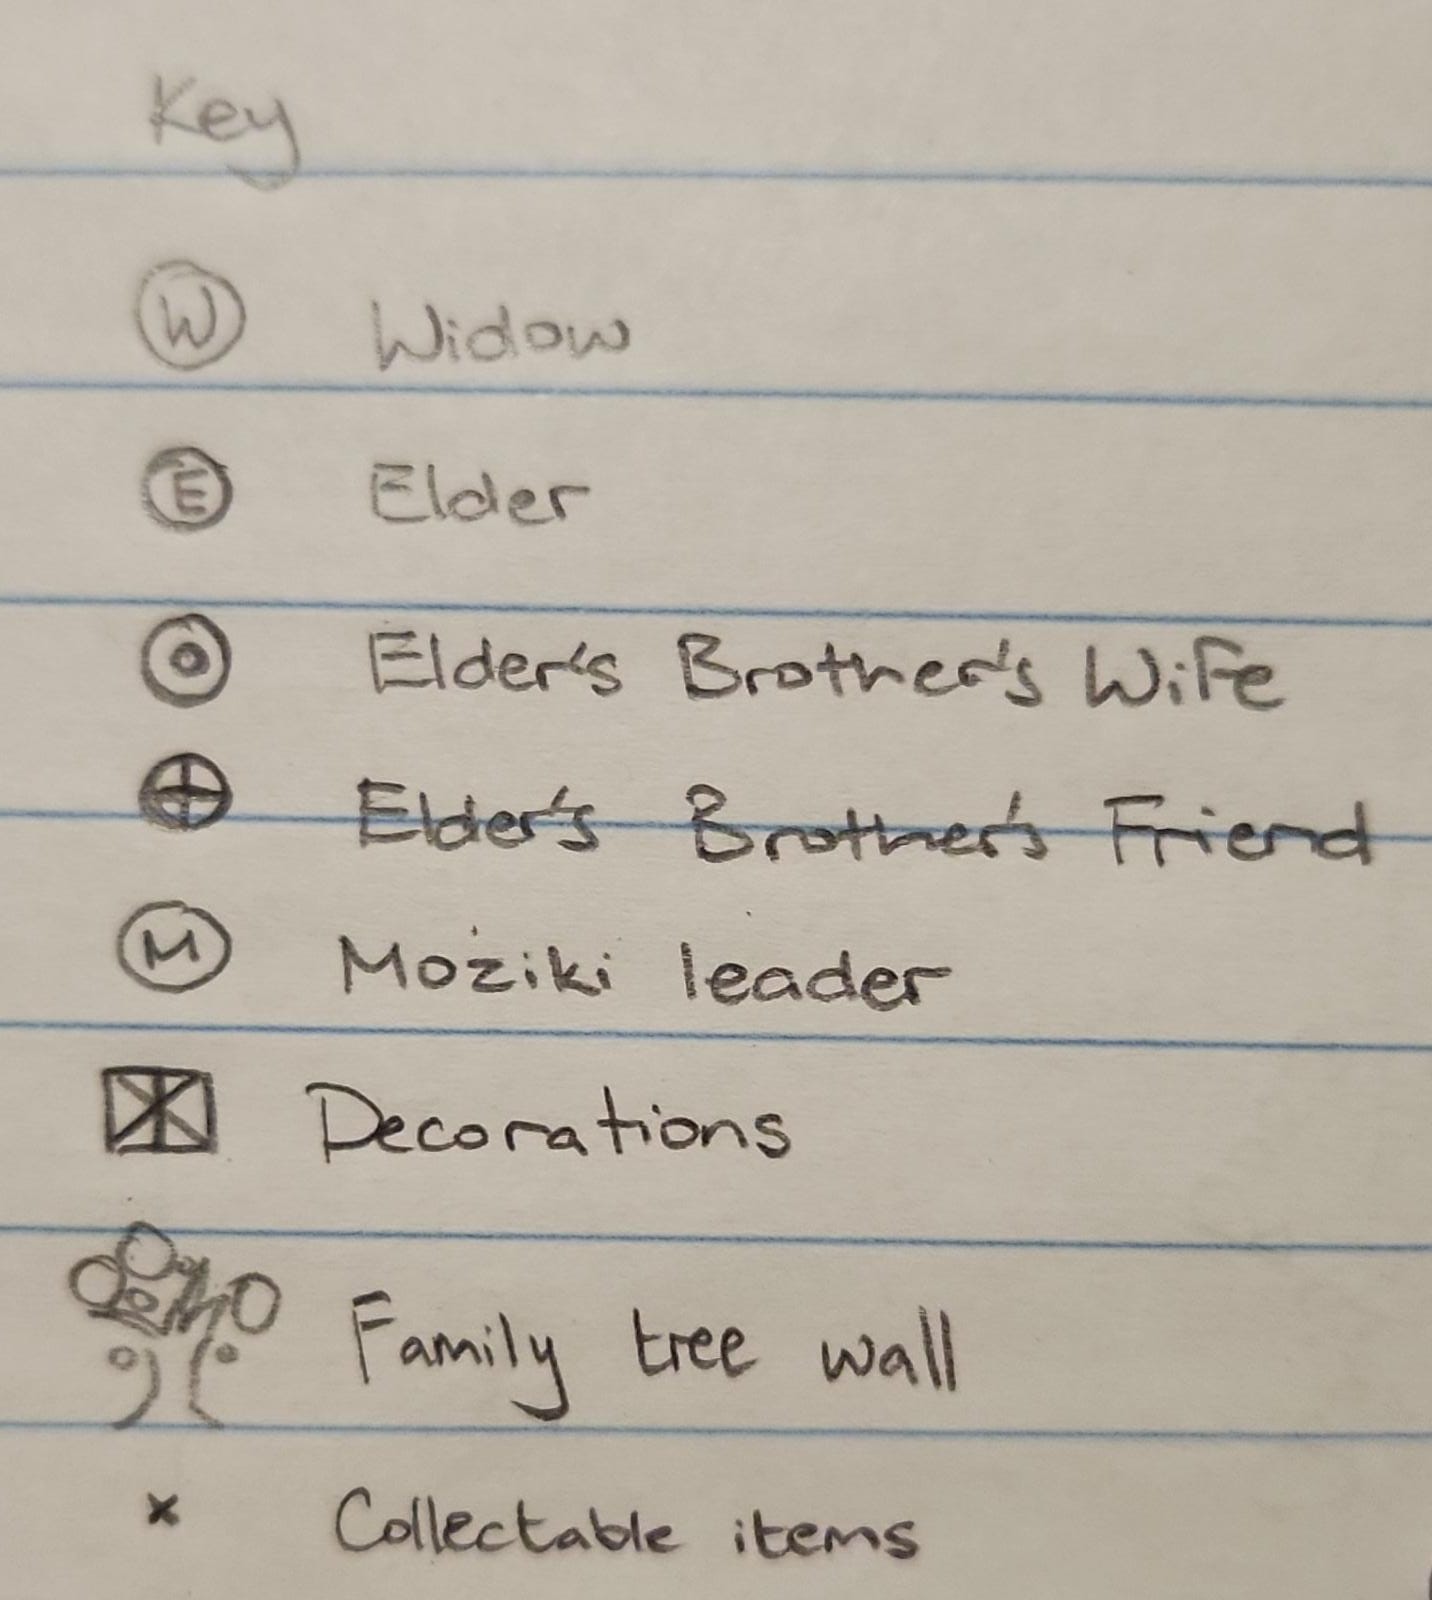 Key
W Widow
E Elder
Elder's Brother's Wife
Elder's Brother's Friend
M Moziki leader
Decorations
Family tree wall
x Collectable items